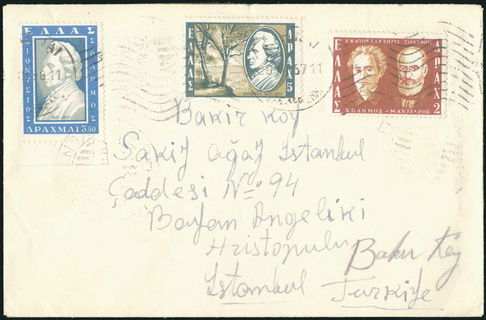 ΕΛΛΑΣ
ΔΙΟΝΥΣΙΟΣ
ΣΟΛΩΜΟΣ
1857-1957
ΔΡΑΧΜΑΙ 3.50
ΕΛΛΑΣ
ΔΡΑΧ 5
ΕΚΑΤΟΝΤΑΕΤΗΡΙΣ ΣΟΛΩΜΟΥ
ΕΛΛΑΣ
ΔΡΑΧ 2
ΣΟΛΩΜΟΣ-ΜΑΝΤΖΑΡΟΣ
Bakir Koy
Sakiz Agaz Istanbul
Çaddesi No 94
Bayan Angeliki
Hristopulu
Baku Koy
Istanbul Turkiye